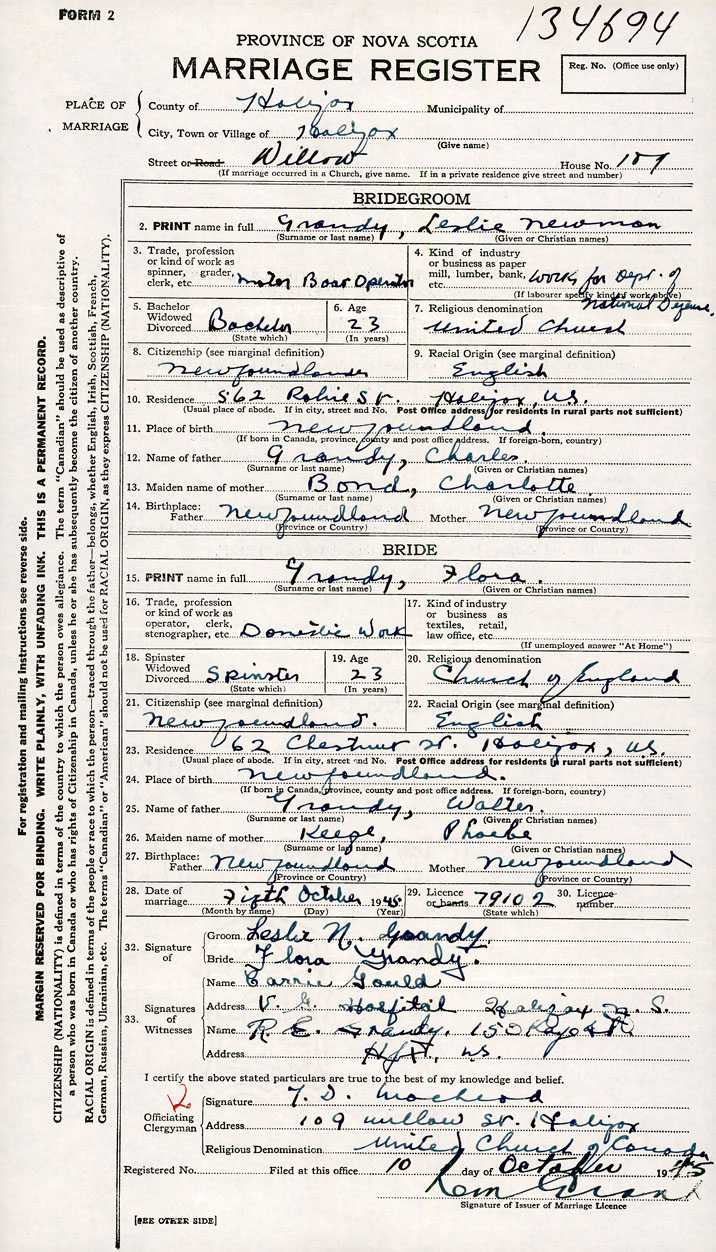 FORM 2
134694
PROVINCE OF NOVA SCOTIA
MARRIAGE REGISTER
Reg. No. (Office use only)
PLACE OF MARRIAGE
County of Halifax Municipality of
City, Town or Village of Halifax
(Give name)
Street or Road Willow House No. 109
(If marriage occurred in a Church, give name. If in a private residence give street and number)
BRIDEGROOM
2. PRINT name in full Grandy, Leslie Newman
(Surname or last name) (Given or Christian names)
3. Trade, profession or kind of work as spinner, grader, clerk, etc. Motor Boat Operator
4. Kind of industry or business as paper mill, lumber, bank, etc. Works for Dept. of National Defense
(If labourer specify kind of work above)
5. Bachelor Widowed Divorced Bachelor
(State which)
6. Age 23
(In years)
7. Religious denomination United Church
8. Citizenship (see marginal definition) Newfoundlander
9. Racial Origin (see marginal definition) English
10. Residence 562 Robie St. Halifax, N.S.
(Usual place of abode. If in city, street and No. Post Office address for residents in rural parts not sufficient)
11. Place of birth Newfoundland.
(If born in Canada, province, county and post office address. If foreign-born, country)
12. Name of father Grandy, Charles.
(Surname or last name) (Given or Christian names)
13. Maiden name of mother Bond, Charlotte
(Surname or last name) (Given or Christian names)
14. Birthplace: Father Newfoundland Mother Newfoundland
(Province or Country) (Province or Country)
BRIDE
15. PRINT name in full Grandy, Flora.
(Surname or last name) (Given or Christian names)
16. Trade, profession or kind of work as operator, clerk, stenographer, etc. Domestic Work
17. Kind of industry or business as textiles, retail, law office, etc.
(If unemployed answer "At Home")
18. Spinster Widowed Divorced Spinster
(State which)
19. Age 23
(In years)
20. Religious denomination Church of England
21. Citizenship (see marginal definition) Newfoundland.
22. Racial Origin (see marginal definition) English
23. Residence 62 Chestnut St. Halifax, N.S.
(Usual place of abode. If in city, street and No. Post Office address for residents in rural parts not sufficient)
24. Place of birth Newfoundland.
(If born in Canada, province, county and post office address. If foreign-born, country)
25. Name of father Grandy, Walter.
(Surname or last name) (Given or Christian names)
26. Maiden name of mother Phoebe
(Surname or last name) (Given or Christian names)
27. Birthplace: Father Newfoundland Mother Newfoundland
(Province or Country) (Province or Country)
28. Date of marriage Fifth October 1945
(Month by name) (Day) (Year)
29. Licence or banns 79102
(State which)
30. Licence number
32. Signature of
Groom Leslie N. Grandy.
Bride Flora Grandy.
33. Signatures of Witnesses
Name Carrie Gould
Address V. G. Hospital Halifax N. S.
Name R. E. Grandy. 150
Address Hfx, N.S.
I certify the above stated particulars are true to the best of my knowledge and belief.
Officiating Clergyman
Signature
Address 109 Willow St. Halifax
Religious Denomination United Church of Canada
Registered No. Filed at this office 10 day of October 1945
Signature of Issuer of Marriage Licence
[SEE OTHER SIDE]
For registration and mailing instructions see reverse side.
MARGIN RESERVED FOR BINDING. WRITE PLAINLY, WITH UNFADING INK. THIS IS A PERMANENT RECORD.
CITIZENSHIP (NATIONALITY) is defined in terms of the country to which the person owes allegiance. The term "Canadian" should be used as descriptive of
a person who was born in Canada or who has rights of Citizenship in Canada, unless he or she has subsequently become the citizen of another country.
RACIAL ORIGIN is defined in terms of the people or race to which the person—traced through the father—belongs, whether English, Irish, Scottish, French,
German, Russian, Ukrainian, etc. The terms "Canadian" or "American" should not be used for RACIAL ORIGIN, as they express CITIZENSHIP (NATIONALITY).